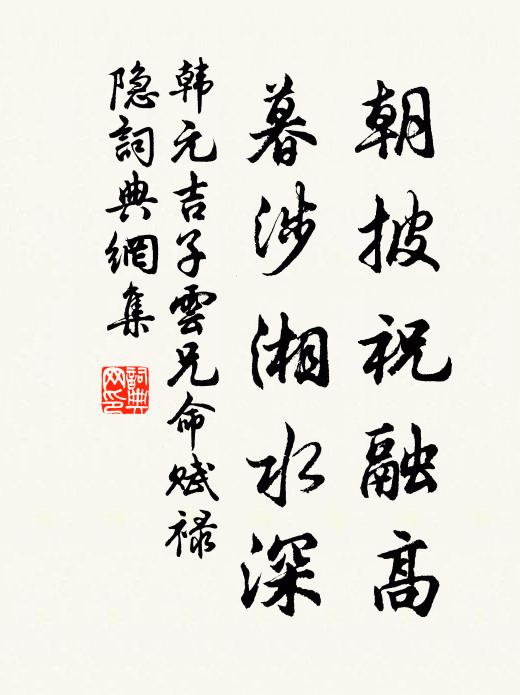 朝披祝融高
暮涉湘水深
韩元吉子雲兄命赋禄
隐詞典網集
詞典
网印